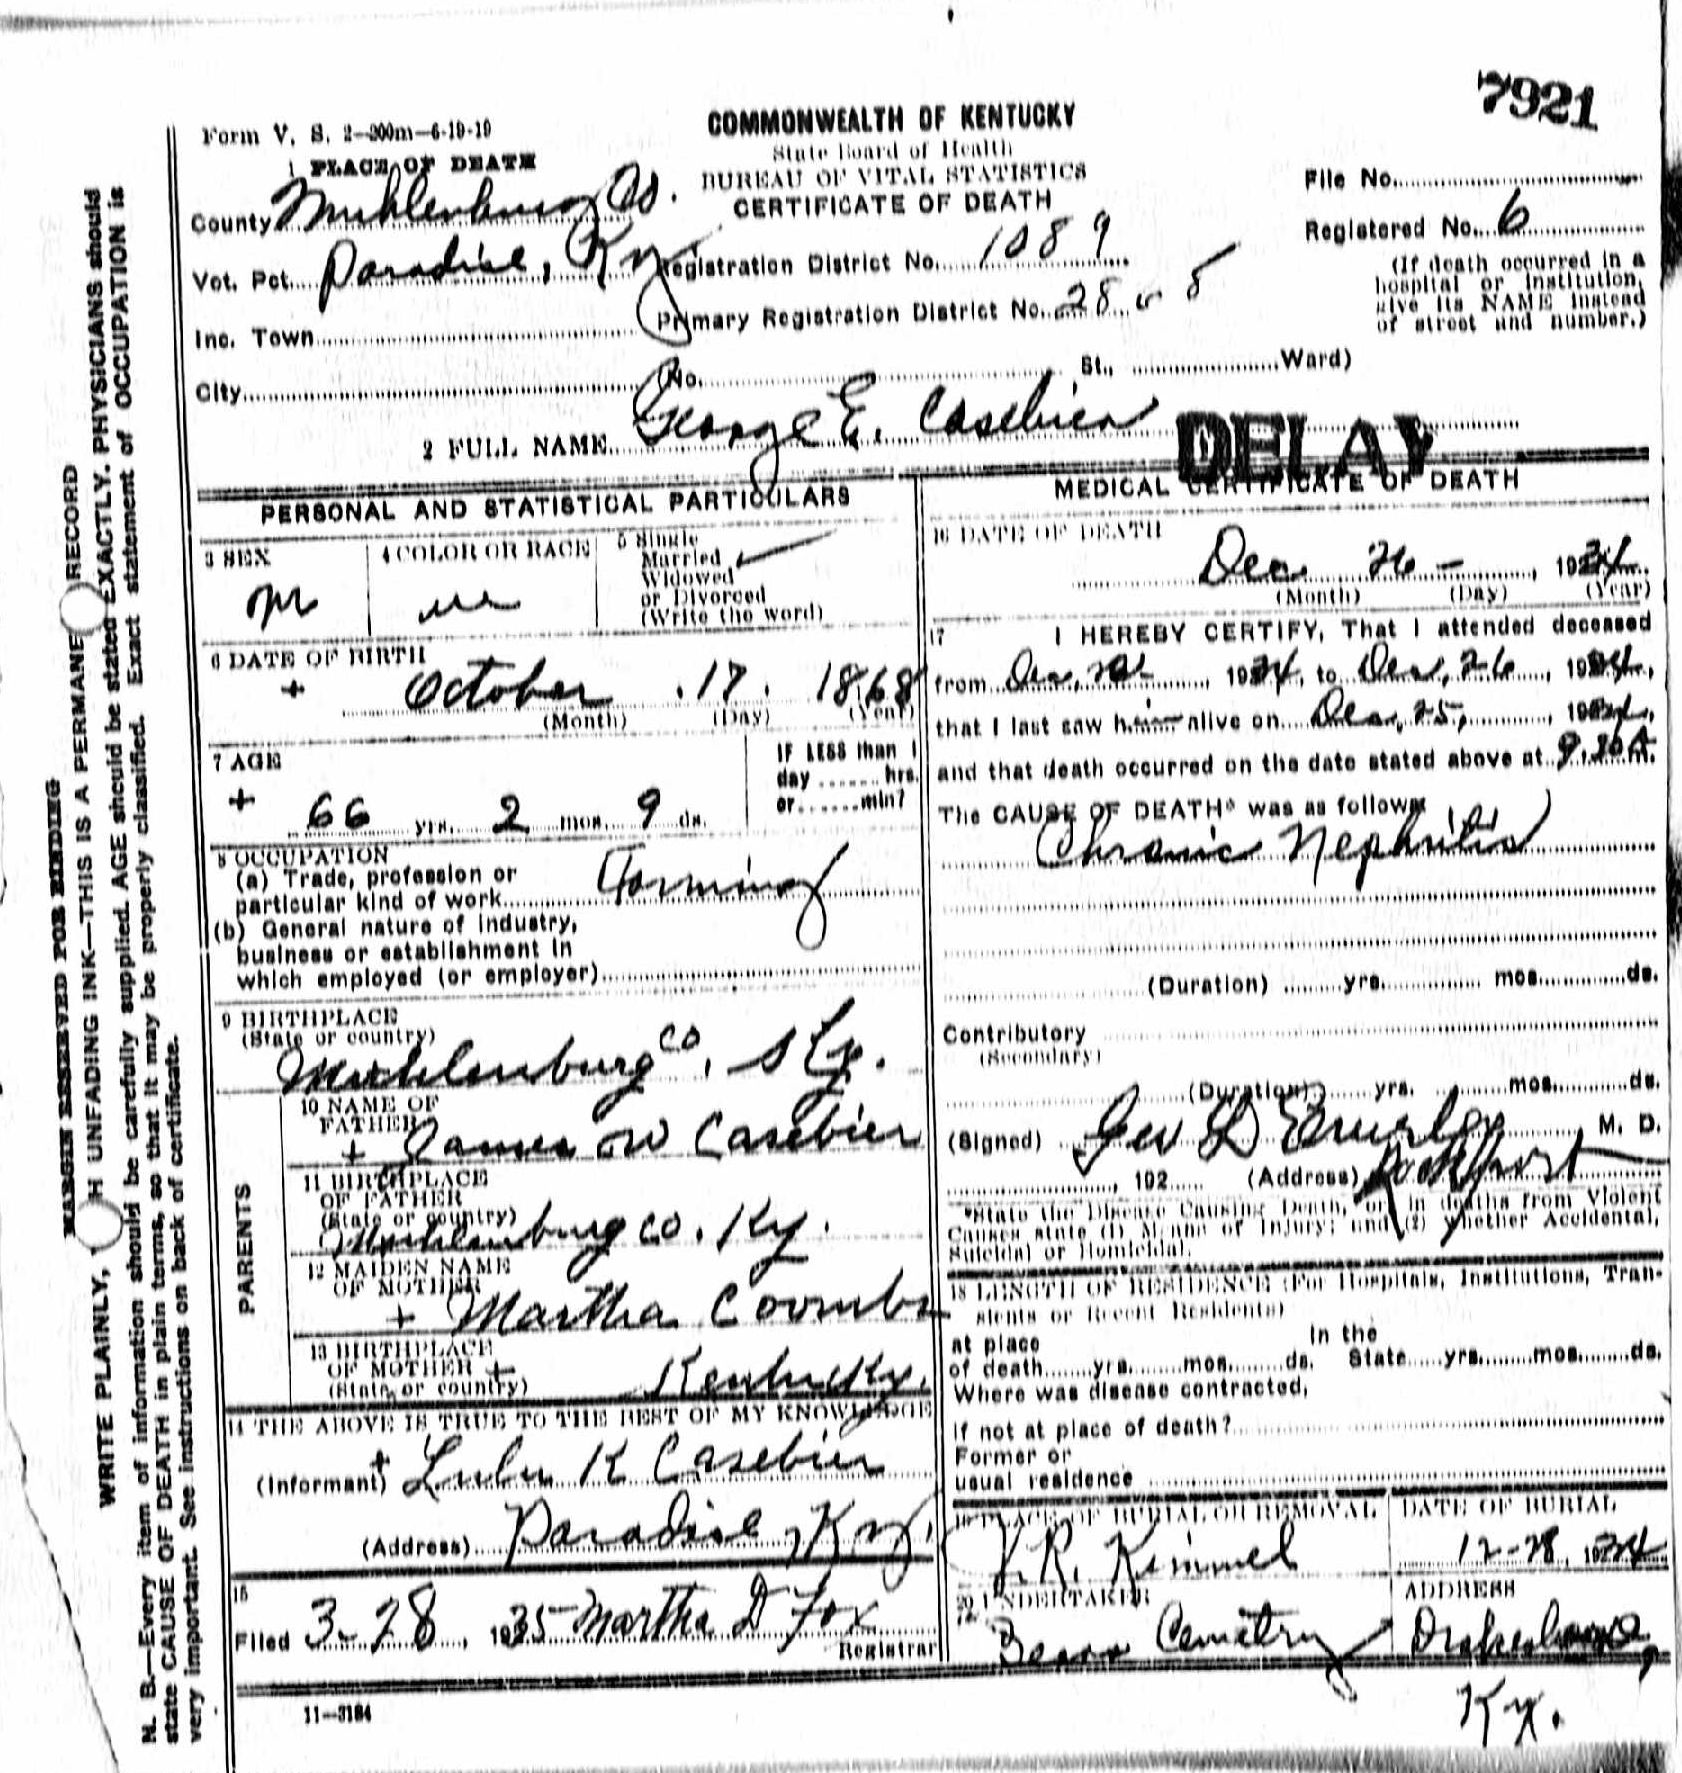 7921
Form V. S. 2—300m—6-19-19
COMMONWEALTH OF KENTUCKY
State Board of Health
BUREAU OF VITAL STATISTICS
CERTIFICATE OF DEATH
1 PLACE OF DEATH
County Muhlenburg Co.
Vot. Pct. Paradise, Ky
Inc. Town
City
File No.
Registered No. 6
Registration District No. 1089
Primary Registration District No.
(If death occurred in a
hospital or institution,
give its NAME instead
of street and number.)
No. St., Ward)
2 FULL NAME George E. Casebier
DELAY
PERSONAL AND STATISTICAL PARTICULARS
3 SEX
M
4 COLOR OR RACE
W
5 Single
Married ✓
Widowed
or Divorced
(Write the word)
6 DATE OF BIRTH
+ October 17. 1868
(Month) (Day) (Year)
7 AGE
+ 66 yrs. 2 mos. 9 ds.
IF LESS than 1
day hrs.
or min?
8 OCCUPATION
(a) Trade, profession or
particular kind of work Farming
(b) General nature of industry,
business or establishment in
which employed (or employer)
9 BIRTHPLACE
(State or country)
Muhlenburg Co, Ky.
PARENTS
10 NAME OF
FATHER
+ James W Casebier
11 BIRTHPLACE
OF FATHER
(State or country)
Muhlenburg Co. Ky.
12 MAIDEN NAME
OF MOTHER
+ Martha Coombs
13 BIRTHPLACE
OF MOTHER +
(State or country) Kentucky.
14 THE ABOVE IS TRUE TO THE BEST OF MY KNOWLEDGE
(Informant) + Lulu K Casebier
(Address) Paradise, Ky.
15
Filed 3-28, 1935 Martha D Fox
Registrar
11—3184
MEDICAL CERTIFICATE OF DEATH
16 DATE OF DEATH
Dec 26 - , 1934
(Month) (Day) (Year)
17 I HEREBY CERTIFY, That I attended deceased
from Dec, 1934, to Dec, 26, 1934,
that I last saw him alive on Dec, 25, 1934,
and that death occurred on the date stated above at 9.30 A.m.
The CAUSE OF DEATH* was as follows:
Chronic Nephritis
(Duration) yrs. mos. ds.
Contributory
(Secondary)
(Duration) yrs. mos. ds.
(Signed) Geo D M. D.
, 192 (Address) Rockport
*State the Disease Causing Death, or, in deaths from Violent
Causes state (1) Means of Injury; and (2) whether Accidental,
Suicidal or Homicidal.
18 LENGTH OF RESIDENCE (For Hospitals, Institutions, Tran-
sients or Recent Residents)
at place In the
of death yrs. mos. ds. State yrs. mos. ds.
Where was disease contracted,
if not at place of death?
Former or
usual residence
19 PLACE OF BURIAL OR REMOVAL
V.R. Kimmel
DATE OF BURIAL
12-28, 1934
20 UNDERTAKER
Cemetry
ADDRESS
Drakesboro,
Ky.
MARGIN RESERVED FOR BINDING
WRITE PLAINLY, H UNFADING INK—THIS IS A PERMANE RECORD
N. B.—Every item of information should be carefully supplied. AGE should be stated EXACTLY. PHYSICIANS should
state CAUSE OF DEATH in plain terms, so that it may be properly classified. Exact statement of OCCUPATION is
very important. See instructions on back of certificate.